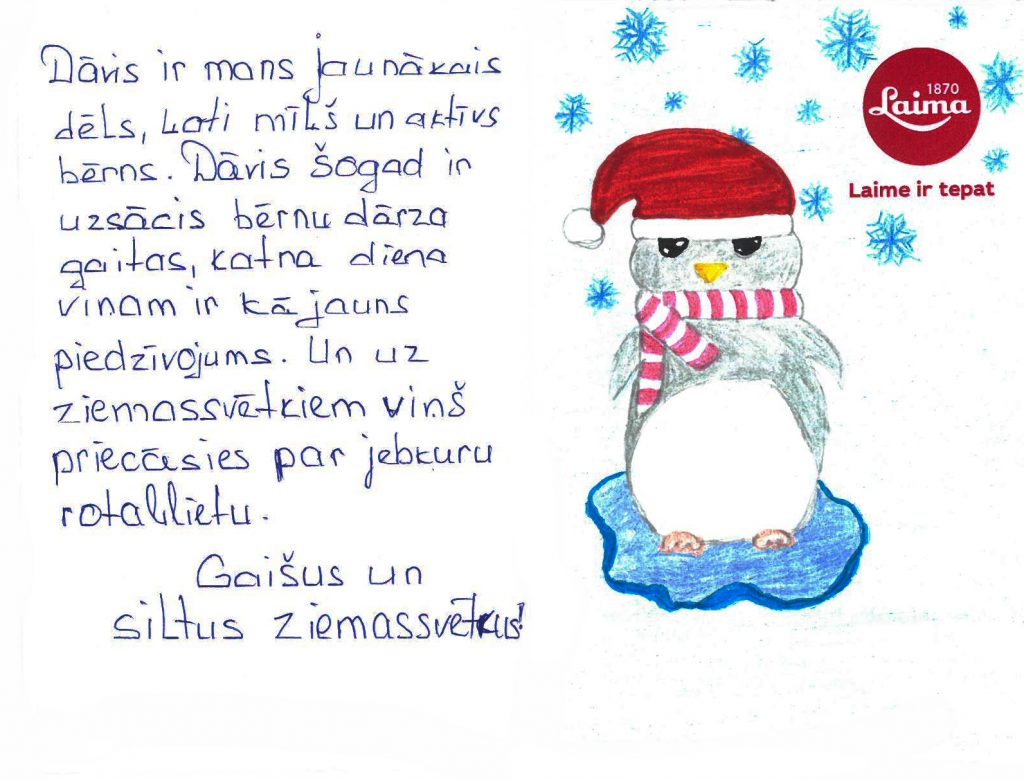 Dāvis ir mans jaunākais
dēls, ļoti mīļš un aktīvs
bērns. Dāvis šogad ir
uzsācis bērnu dārza
gaitas, katna diena
viņam ir kā jauns
piedzīvojums. Un uz
ziemassvētkiem viņš
priecāsies par jebkuru
rotaļlietu.
Gaišus un
siltus ziemassvētkus!
1870
Laima
Laime ir tepat